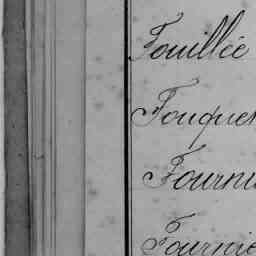 Fouillée
Fouquer
Fourni
Fournie